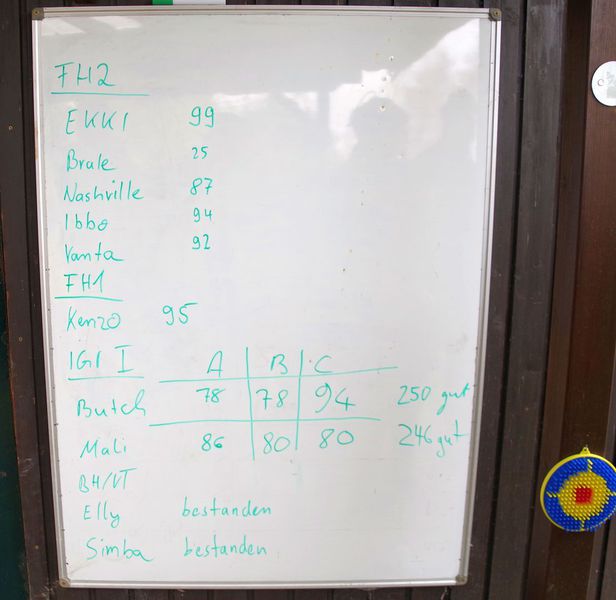 FH2
EKKI 99
Brale 25
Nashville 87
Ibbo 94
Vanta 92
FH1
Kenzo 95
IGP I A B C
Butch 78 78 94 250 gut
Mali 86 80 80 246 gut
BH/VT
Elly bestanden
Simba bestanden